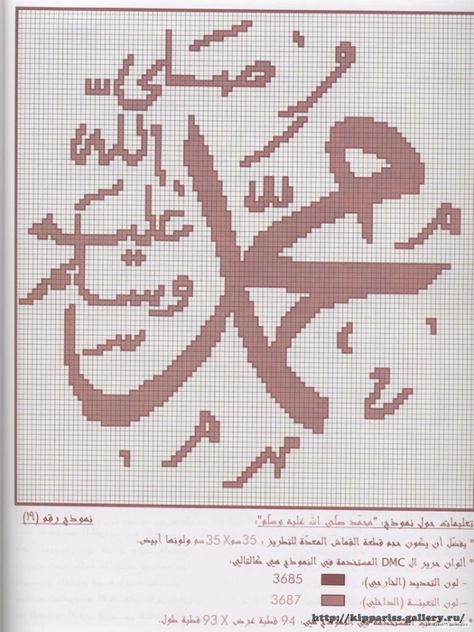 صلى
الله
عليه
وسلم
محمد
تعليمات حول نموذج: "محمّد صلّى الله عليه وسلّم": نموذج رقم (١٩)
* يفضّل أن يكون حجم قطعة القماش المعدّة للتطريز : 35سمX35سم ولونها أبيض.
* ألوان حرير ال DMC المستخدمة في النموذج هي كالتالي:
- لون التحديد (الخارجي): 3685
- لون التعبئة (الداخلي): 3687
http://kippariss.gallery.ru/
المستخدمة في النموذج هي: 94 قطبة عرض X 93 قطبة طول.